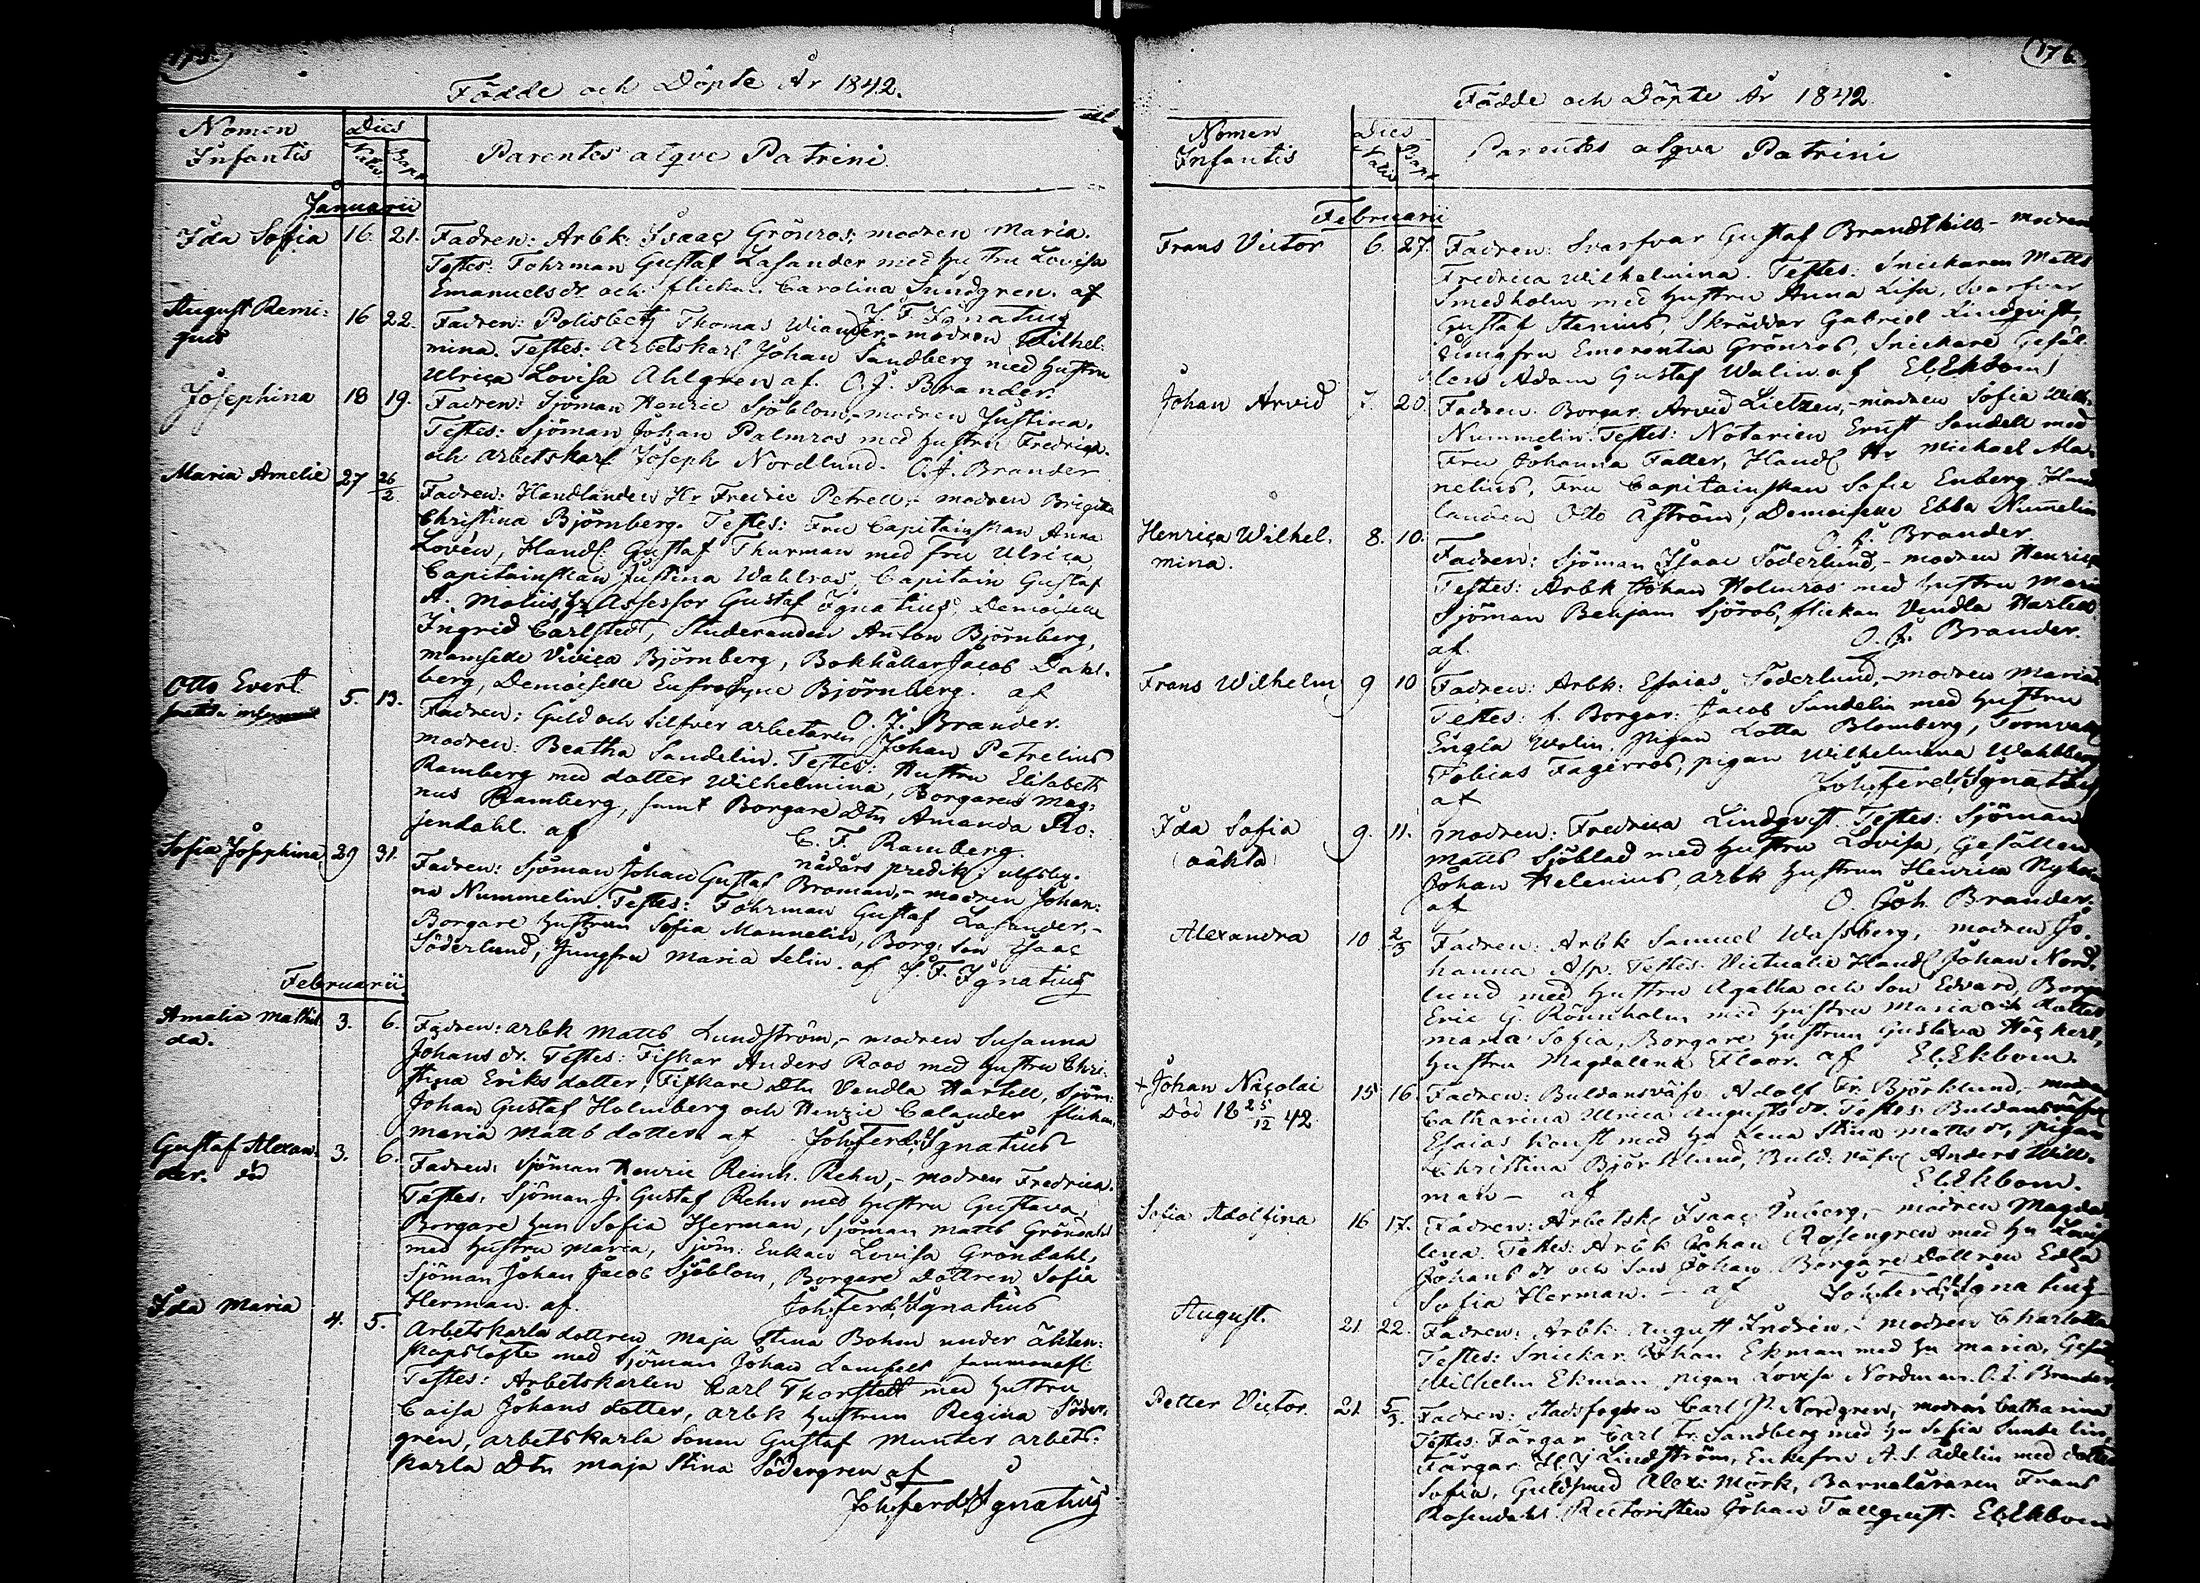 175.
Födde och Döpte År 1842.
Nomen Infantis
Dies
Nativ. Bapt.
Parentes atqve Patrini
Januarii
Ida Sofia 16. 21. Fadren: Arbk: Isaac Grönros, modren Maria.
Testes: Fohrman Gustaf Lasander med hustru Lovisa
Emanuelsdr och flickan Carolina Sundgren. af
J. F. Ignatius
August Remi: 16 22. Fadren: Polisbetj Thomas Wiander, - modren Wilhel-
gius
mina. Testes: Arbetskarl Johan Sandberg med hustru
Ulrica Lovisa Ahlgren af. O. J. Brander.
Josephina 18 19. Fadren: Sjöman Henric Sjöblom, - modren Justina.
Testes: Sjöman Johan Palmros med hustru Fredrica.
och arbetskarl Joseph Nordlund. O. J. Brander
Maria Amelie 27 26/2. Fadren: Handlanden Hr Fredric Petrell, - modren Brigitta
Christina Björnberg. Testes: Fru Capitainskan Anna
Lovén, Handl: Gustaf Thurman med fru Ulrica,
Capitainskan Justina Wahlros, Capitain Gustaf
A. Moliis, Hr Assessor Gustaf Ignatius, Demoiselle
Ingrid Carlstedt, Studeranden Anton Björnberg,
mamselle Vivica Björnberg, Bokhållar Jacob Dahl-
berg, Demoiselle Eufrosyne Björnberg. af
O. J. Brander.
Otto Evert 5. 13. Fadren: Guld och Silfver arbetaren Johan Petrelius
modren: Beatha Sandelin. Testes: Hustru Elisabeth
Ramberg med dotter Wilhelmina, Borgarens Mag-
nus Ramberg, samt Borgare Dtn Amanda Ro:
jendahl. af C. F. Ramberg.
nådårs predik: ulfsby.
Sofia Josephina 29 31. Fadren: Sjöman Johan Gustaf Broman, - modren Johan:
na Nummelin. Testes: Fohrman Gustaf Lasander, -
Borgare hustrun Sofia Mannelin, Borg: son Isaac
Söderlund, Jungfru Maria Selin. af J. F. Ignatius
Februarii
Amalia Mathil 3. 6. Fadren: arbk Matts Lundström, - modren Susanna
da.
Johans dr. Testes: Fiskar Anders Roos med hustru Chri-
stina Eriks dotter, Fiskare Dtn Vendla Hartell, Sjöm:
Johan Gustaf Holmberg och Henric Calander flickan
Maria Matts dotter af Joh: Ferd: Ignatius
Gustaf Alexan- 3. 6. Fadren: Sjöman Henric Reinh. Rehn, - modren Fredrica.
der. död
Testes: Sjöman J. Gustaf Rehn med hustru Gustava,
Borgare hun Sofia Herman, Sjöman Matts Gröndahl
med hustru Maria, Sjöm: Enkan Lovisa Gröndahl,
Sjöman Johan Jacob Sjöblom, Borgare dottren Sofia
Herman. af. Joh: Ferd: Ignatius
Ida Maria 4. 5. Arbetskarla dottren Maja Stina Bohm under äkten:
skapslöfte med Sjöman Johan Lamsell
Testes: Arbetskarlen Karl Thorstedt med hustru
Caisa Johans dotter, arbk hustrun Regina Söder-
gren, arbetskarla sonen Gustaf Munter arbets:
karla Dtn Maja Stina Södergren af
Joh: Ferd: Ignatius
176
Födde och Döpte År 1842
Nomen Infantis
Dies
Nativ Bapt
Parentes atqve Patrini
Februarii
Frans Victor 6. 27. Fadren: Svarfvar Gustaf Brandthill, - modren
Fredrica Wilhelmina. Testes: Snickaren Matts
Smedholm med hustru Anna Lisa, Svarfvar
Gustaf Stenius, Skräddar Gabriel Lindqvist,
Jungfru Emerentia Grönros, Snickare Gesäl
len Adam Gustaf Walin. af El. Ekbom
Johan Arvid 7. 20. Fadren: Borgar. Arvid Lietzen, - modren Sofia Wilh.
Nummelin. Testes: Notarien Ernst Sandell med
Fru Johanna Faller, Handl Hr Michael Ma-
nelius, Fru Capitainskan Sofie Enberg, Hand
landen Otto Åström, Demoiselle Ebba Nummelin
O. J. Brander.
Henrica Wilhel- 8. 10. Fadren: Sjöman Isaac Söderlund, - modren Henrica
mina.
Testes: Arbk Johan Holmros med hustru Maria
Sjöman Benjam Sjöros, flickan Vendla Hartell
af. O. J. Brander.
Frans Wilhelm 9 10 Fadren: Arbk: Esaias Söderlund, - modren Maria
Testes: f. Borgar: Jacob Sundelin med hustru
Engla Walin, pigan Lotta Blomberg, Tornvakt
Tobias Fagerros, pigan Wilhelmina Wahlberg
af Joh: Ferd: Ignatius
Ida Sofia 9. 11. Modren: Fredrica Lindqvist. Testes: Sjöman
(oäkta)
Matts Sjöblad med hustru Lovisa, Gesällen
Johan Helenius, arbk hustrun Henrica Nyholm
af O. Joh. Brander.
Alexandra 10 2/3 Fadren: Arbk Samuel Wassberg, modren Jo-
hanna Asp. Testes: Victualie Handl Johan Nord-
lund med hustru Agatha och Son Edvard, Borgar
Eric G. Rönnholm med hustru Maria och dotter
Maria Sofia, Borgare hustrun Gustava Högkert,
hustru Magdalena Floor. af El. Ekbom.
+ Johan Nicolai 15 16. Fadren: Buldansväfv. Adolf Fr. Björklund, - modren
Död 18 25/12 42.
Catharina Ulrica Augusts dr. Testes: Buldansväfv
Esaias Konst med hu Lena Stina Matts dr, pigan
Christina Björklund, Buld: väfv Anders Will-
man - af El. Ekbom.
Sofia Adolfina 16 17. Fadren: Arbetsk Isaac Enberg, - modren Magda
lena. Testes: Arbk Johan Rosengren med hu Lovis
Johans dr och son Johan. Borgare Dottren Edla
Sofia Herman. - af Joh: Ferd: Ignatius
August. 21 22. Fadren: Arbk August Indrén, - modren Charlotta
Testes: Snickar Johan Ekman med hu Maria, Gesäl
Wilhelm Ekman pigan Lovisa Nordman. O. J. Brander
Petter Victor 21 5/3. Fadren: Stadsfogden Carl P. Nordgren, modren Catharina
Testes: Färgar Carl Fr. Sandberg med hu Sofia Sundelin,
Färgar H. J. Lindström, Enkefru A. S. Ådelin med dotter
Sofia, Guldsmed Alex: Mörk, Barnaläraren Frans
Rosendahl. Rectoristen Johan Tallqvist. El. Ekbom